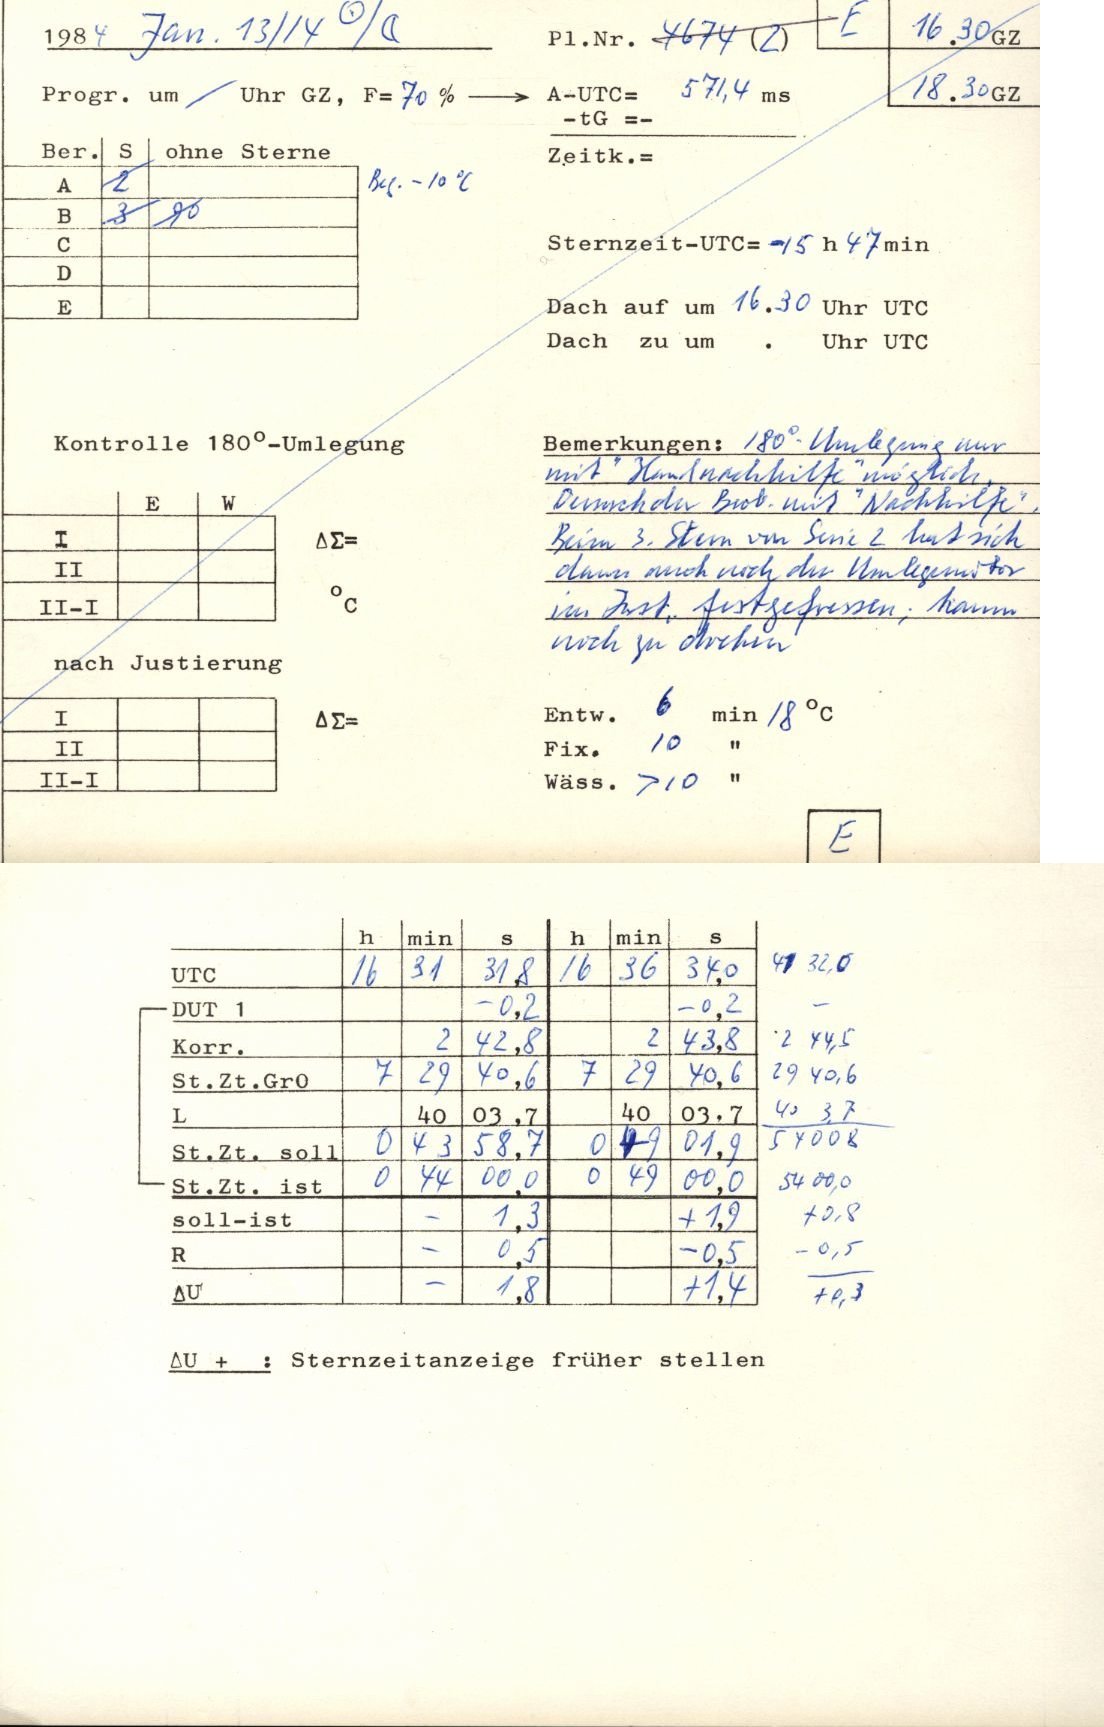 1984 Jan. 13/14 ☉/☾
Pl.Nr. 4674 (2) E 16.30 GZ
Progr. um / Uhr GZ, F= 70 % ⟶ A-UTC= 571,4 ms 18.30 GZ
-tG =-
Ber. S ohne Sterne Zeitk.=
A 2 Beg. -10 °C
B 3 90
C
Sternzeit-UTC= -15 h 47 min
D
E
Dach auf um 16.30 Uhr UTC
Dach zu um . Uhr UTC
Kontrolle 180°-Umlegung
Bemerkungen: 180°-Umlegung nur
mit "Handnachhilfe" möglich.
Dennoch der Beob. mit "Nachhilfe".
Beim 3. Stern von Serie 2 hat sich
dann auch noch der Umlegemotor
im Inst. festgefressen; kaum
noch zu drehen
E W
I ΔΣ=
II
II-I °C
nach Justierung
I ΔΣ=
II
II-I
Entw. 6 min 18 °C
Fix. 10 "
Wäss. >10 "
E
h min s h min s
UTC 16 31 31,8 16 36 34,0 41 32,0
DUT 1 -0,2 -0,2 -
Korr. 2 42,8 2 43,8 2 44,5
St.Zt.Gr0 7 29 40,6 7 29 40,6 29 40,6
L 40 03,7 40 03.7 40 3,7
St.Zt. soll 0 43 58,7 0 49 01,9 54 00 8
St.Zt. ist 0 44 00,0 0 49 00,0 54 00,0
soll-ist - 1,3 +1,9 +0,8
R - 0,5 -0,5 -0,5
ΔU - 1,8 +1,4 +0,3
ΔU + : Sternzeitanzeige früher stellen